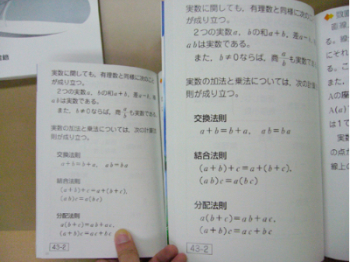 実数に関しても、有理数と同様に次のこ
が成り立つ。
2つの実数a, bの和a+b, 差a-b,
abは実数である。
また, b≠0ならば, 商a/bも実数で
実数の加法と乗法については, 次の計算
則が成り立つ。
交換法則
a+b=b+a, ab=ba
結合法則
(a+b)+c=a+(b+c),
(ab)c=a(bc)
分配法則
a(b+c)=ab+ac,
(a+b)c=ac+bc
43-2
実数に関しても, 有理数と同様に次のこ
が成り立つ。
2つの実数a, bの和a+b, 差a-b,
abは実数である。
また, b≠0ならば, 商a/bも実数であ
実数の加法と乗法については, 次の計
則が成り立つ。
交換法則
a+b=b+a, ab=ba
結合法則
(a+b)+c=a+(b+c),
(ab)c=a(bc)
分配法則
a(b+c)=ab+ac,
(a+b)c=ac+bc
43-2